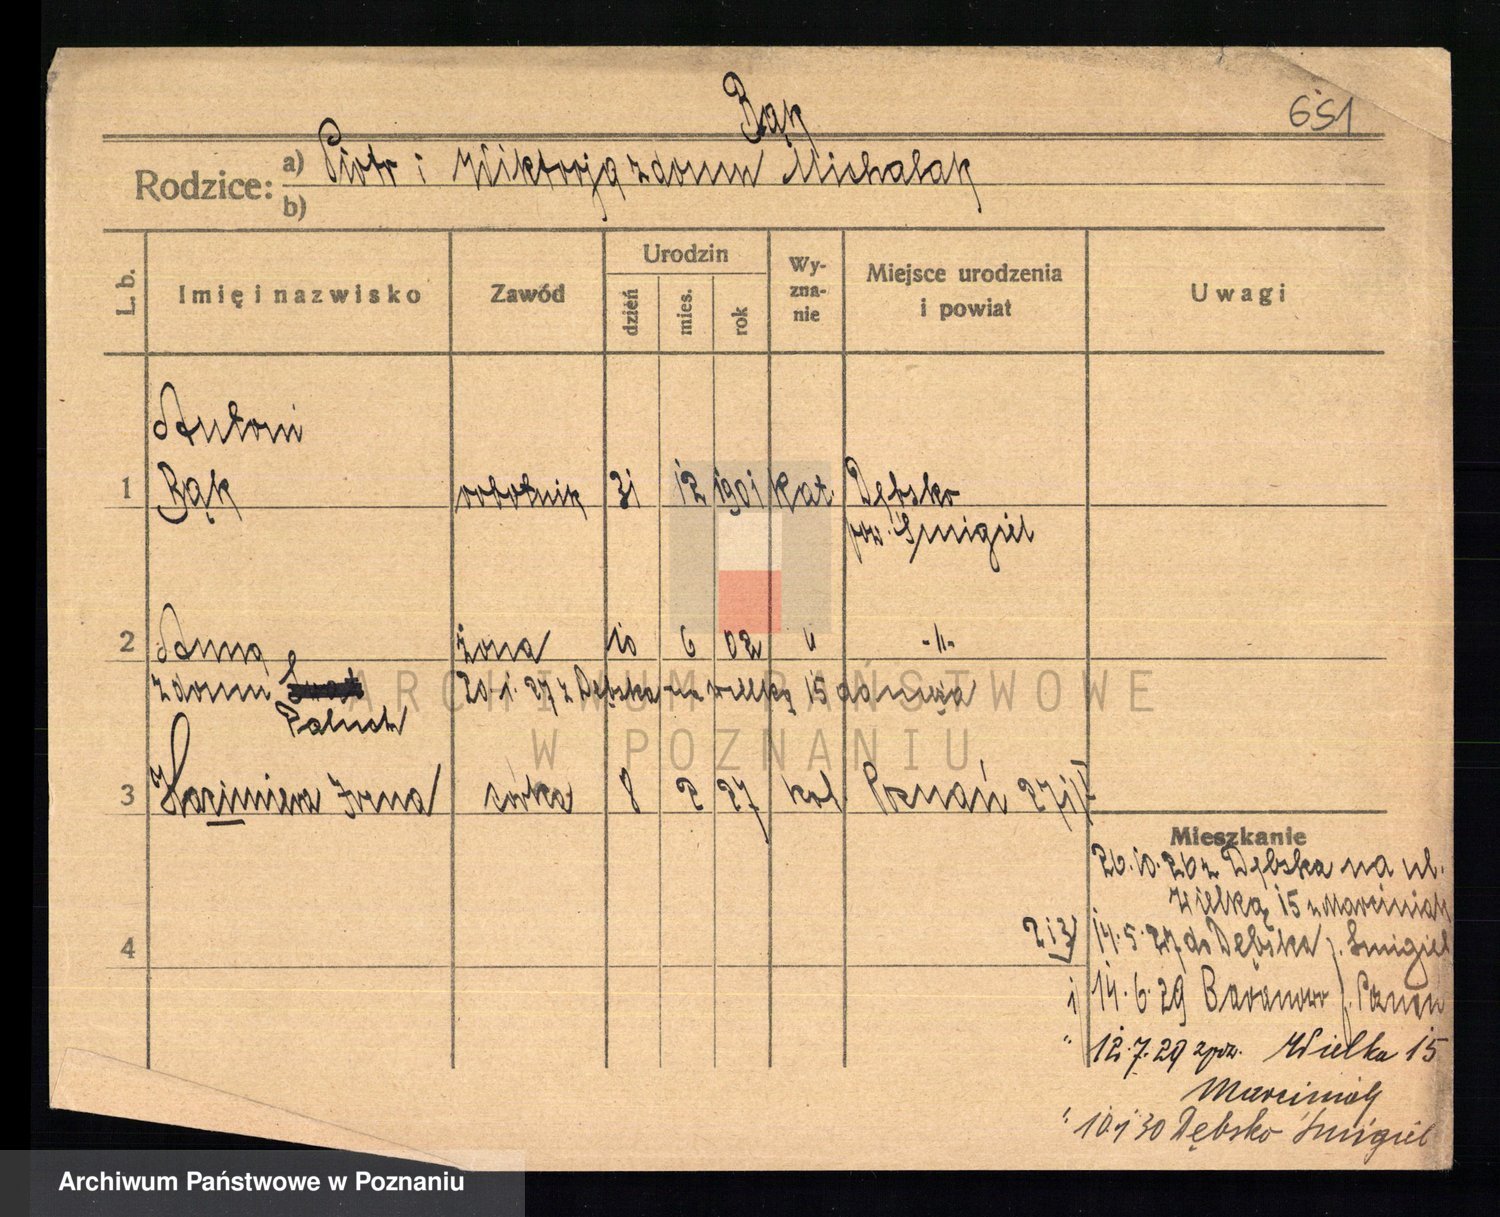 Bąk
651
Rodzice: a) Piotr i Wiktorja z domu Michalak
b)
L. b.
Imię i nazwisko
Zawód
Urodzin
dzień
mies.
rok
Wy-
zna-
nie
Miejsce urodzenia
i powiat
Uwagi
Antoni
1 Bąk robotnik 31 12 1901 kat Dębsko
pow. Śmigiel
2 Anna żona 10 6 02 " -"-
z domu
Paluch
20.1.27 z Dębska na wielką 15 do męża
3 Kazimiera Irena córka 8 2 27 kat Poznań
4
Mieszkanie
26.10.26 z Dębska na ul.
Wielką 15 u Marciniak
2 i 3 14.5.27 do Dębska p. Śmigiel
i 14.6.29 Baranowo p. Poznań
" 12.7.29 zpow. Wielka 15
Marciniak
" 10.1.30 Dębsko Śmigiel
ARCHIWUM PAŃSTWOWE
W POZNANIU
Archiwum Państwowe w Poznaniu